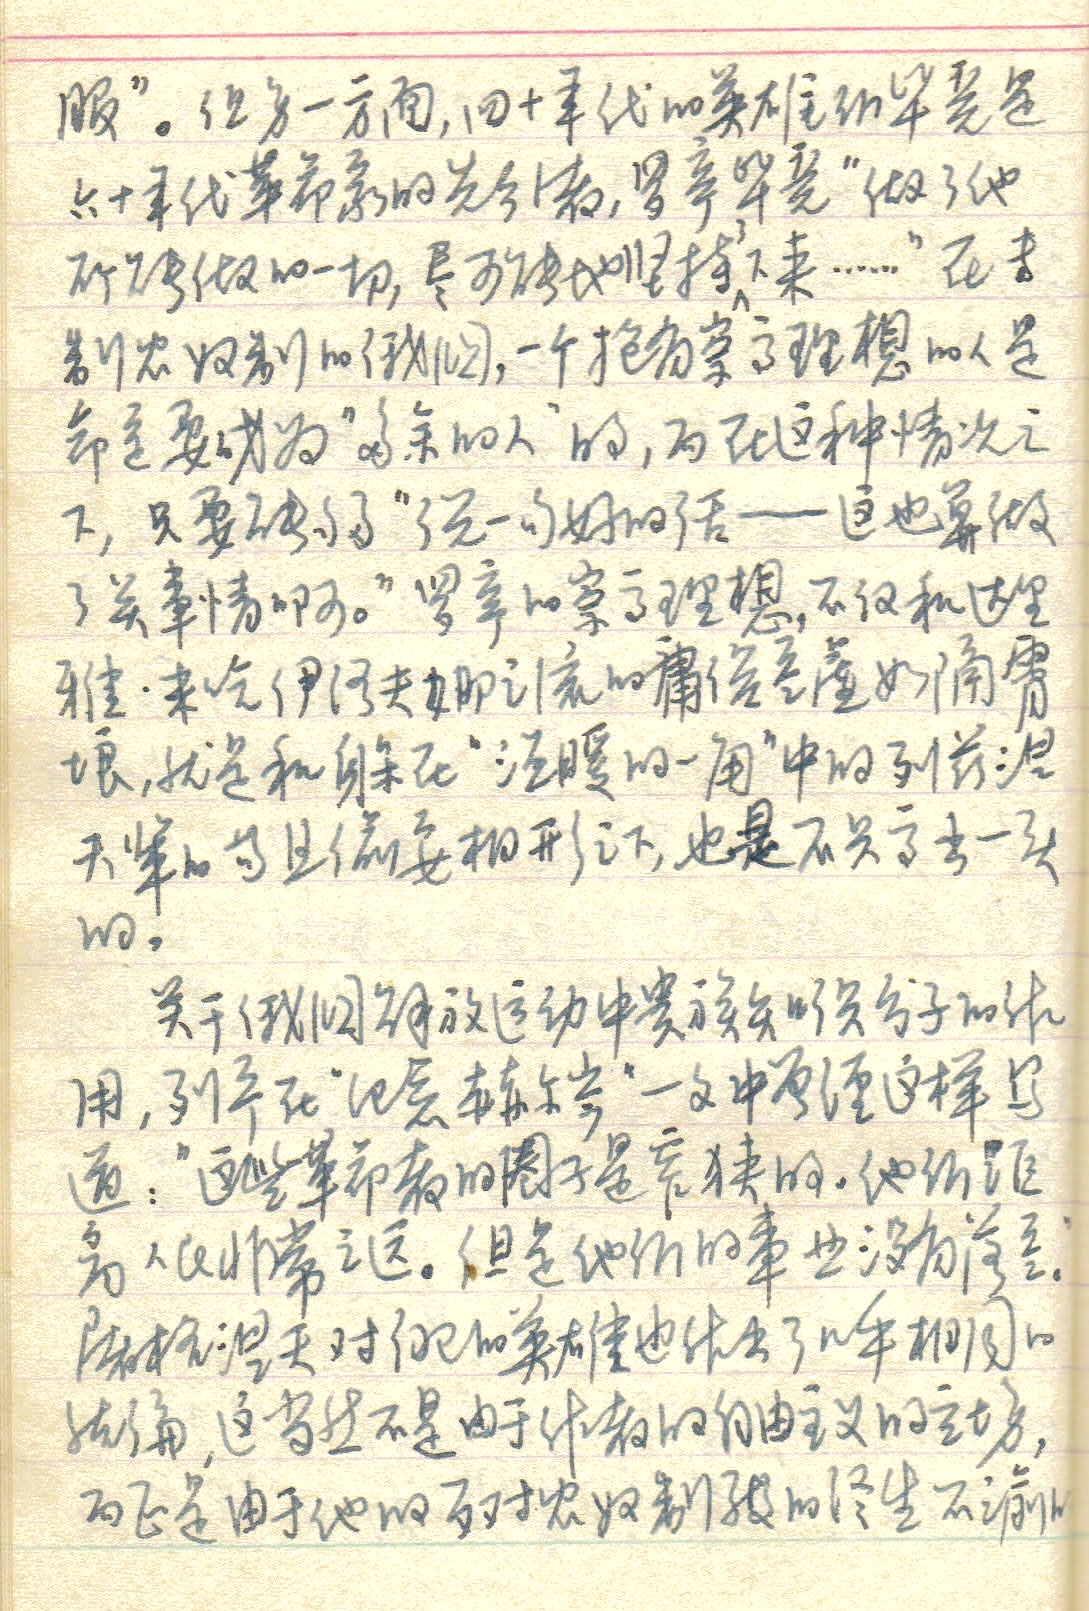 服”。但另一方面,四十年代的英雄们毕竟是
六十年代革命家的先今者,罗亭毕竟“做了他
所能做的一切,尽可能地坚持了下来……”在专
制农奴制的俄国,一个抱有崇高理想的人是
命定要成为“多余的人”的,而在这种情况之
下,只要能够“说一句好的话——这也算做
了关事情呵。”罗亭的崇高理想,不仅和达里
雅·米哈伊洛夫娜之流的庸俗空虚如隔霄
壤,就是和躲在“温暖的一角”中的列兹涅
夫辈的苟且偷安相形之下,也是不只高出一头
的。
关于俄国解放运动中贵族知识分子的作
用,列宁在“纪念赫尔岑”一文中曾经这样写
道:“这些革命者的圈子是窄狭的。他们距
离人民非常之远。但是他们的事业没有落空。”
屠格涅夫对自己的英雄也作出了几乎相同的
结论,这当然不是由于作者的自由主义的立场,
而正是由于他的反对农奴制度的终生不渝的